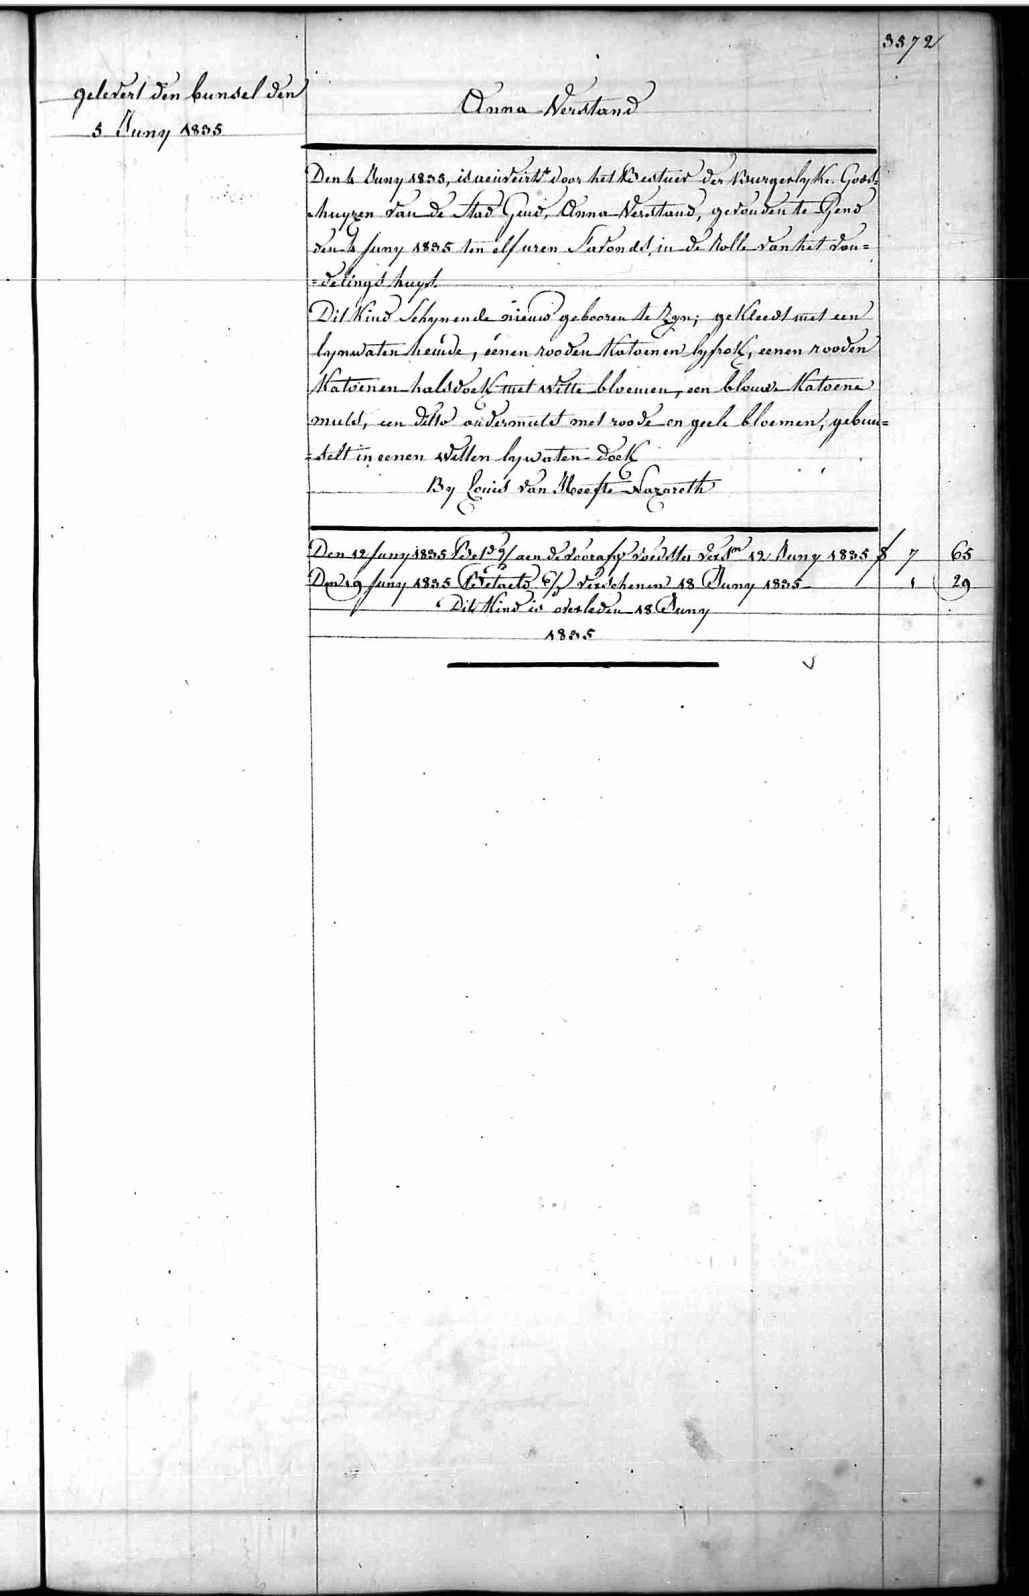 3372
gelevert den bunsel den
5 Juny 1835
Anna Verstand
Den 4 Juny 1835, is aenveirt door het Bestuer der Burgerlyke Gods=
huyzen van de Stad Gend, Anna Verstand, gevonden te Gend
den 4 Juny 1835 ten elf uren Savonds, in de Rolle van het von=
=delings huys.
Dit Kind Schynende nieuw gebooren te Zyn; gekleedt met een
lynwaten hemde, eenen rooden Katoenen lyfrok, eenen rooden
Katoenen halsdoek met witte bloemen, een blouwe Katoene
muts, een ditto ondermuts met roode en geele bloemen, gebun=
=selt in eenen witten lywaten doek
By Louis van Nazareth
Den 12 Juny 1835 aen de voedster 12 Juny 1835 f 7 65
Den 19 Juny 1835 verschenen 18 Juny 1835 1 29
Dit Kind is overleden 18 Juny
1835